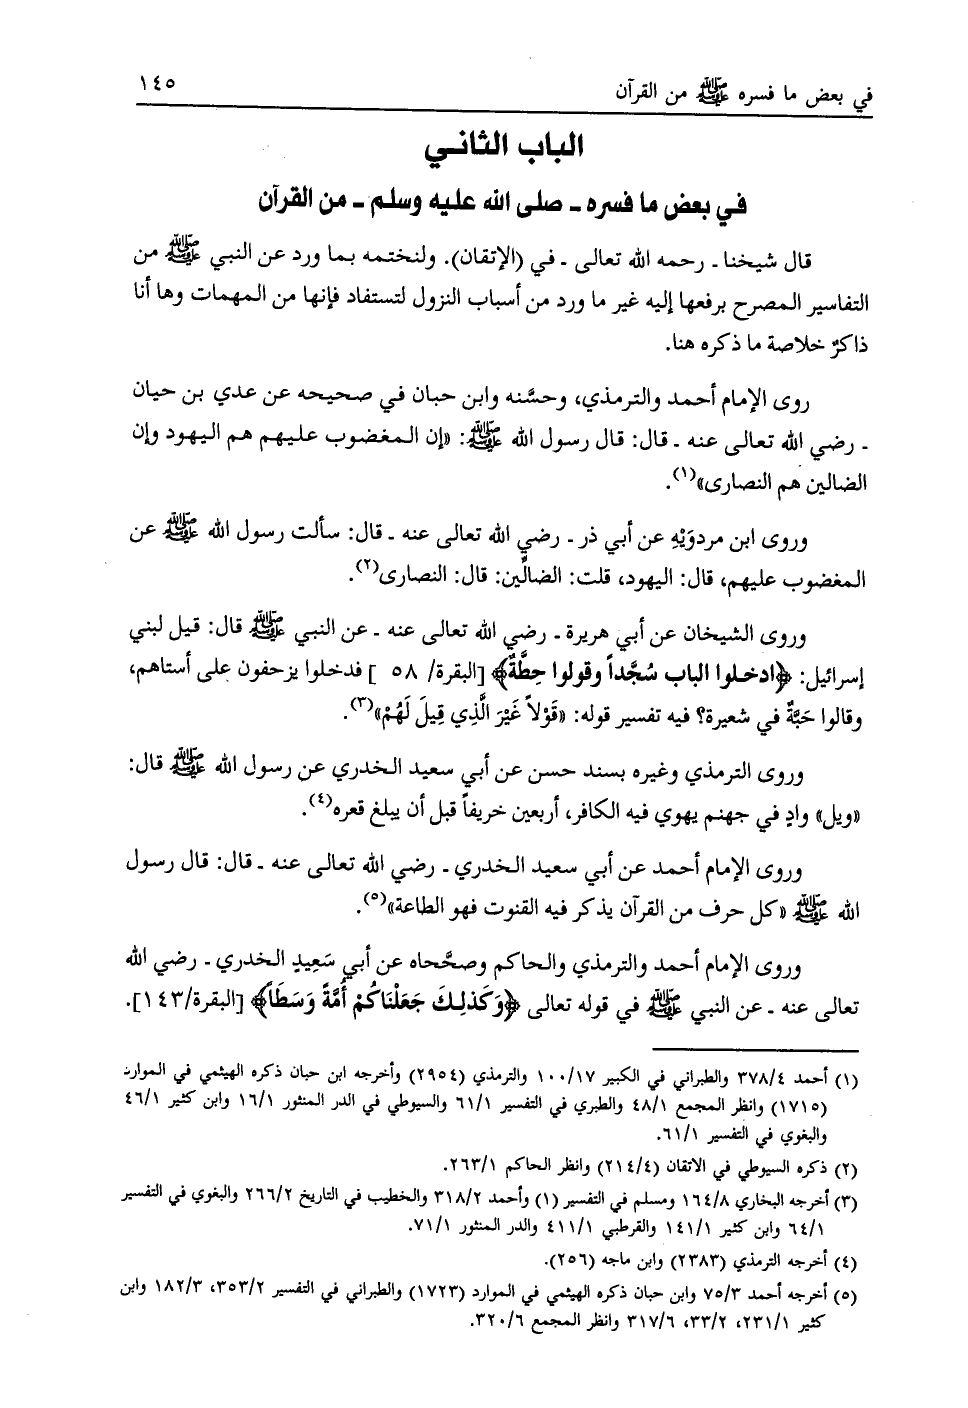 في بعض ما فسره ﷺ من القرآن ١٤٥
الباب الثاني
في بعض ما فسره ـ صلى الله عليه وسلم ـ من القرآن
قال شيخنا ـ رحمه الله تعالى ـ في (الإتقان). ولنختمه بما ورد عن النبي ﷺ من
التفاسير المصرح برفعها إليه غير ما ورد من أسباب النزول لتستفاد فإنها من المهمات وها أنا
ذاكرٌ خلاصة ما ذكره هنا.
روى الإمام أحمد والترمذي، وحسَّنه وابن حبان في صحيحه عن عدي بن حيان
ـ رضي الله تعالى عنه ـ قال: قال رسول الله ﷺ: «إن المغضوب عليهم هم اليهود وإن
الضالين هم النصارى»(١).
وروى ابن مردوَيْهِ عن أبي ذر ـ رضي الله تعالى عنه ـ قال: سألت رسول الله ﷺ عن
المغضوب عليهم، قال: اليهود، قلت: الضالّين: قال: النصارى(٢).
وروى الشيخان عن أبي هريرة ـ رضي الله تعالى عنه ـ عن النبي ﷺ قال: قيل لبني
إسرائيل: ﴿ادخلوا الباب سُجَّداً وقولوا حِطَّةٌ﴾ [البقرة/ ٥٨ ] فدخلوا يزحفون على أستاهم،
وقالوا حَبَّةٌ في شعيرة؟ فيه تفسير قوله: «قَوْلاً غَيْرَ الَّذِي قِيلَ لَهُمْ»(٣).
وروى الترمذي وغيره بسند حسن عن أبي سعيد الخدري عن رسول الله ﷺ قال:
«ويل» وادٍ في جهنم يهوي فيه الكافر، أربعين خريفاً قبل أن يبلغ قعره(٤).
وروى الإمام أحمد عن أبي سعيد الخدري ـ رضي الله تعالى عنه ـ قال: قال رسول
الله ﷺ «كل حرف من القرآن يذكر فيه القنوت فهو الطاعة»(٥).
وروى الإمام أحمد والترمذي والحاكم وصحَّحاه عن أبي سَعِيدٍ الخدري ـ رضي الله
تعالى عنه ـ عن النبي ﷺ في قوله تعالى ﴿وَكَذلِكَ جَعَلْنَاكُمْ أُمَّةً وَسَطَاً﴾ [البقرة/١٤٣].
(١) أحمد ٣٧٨/٤ والطبراني في الكبير ١٠٠/١٧ والترمذي (٢٩٥٤) وأخرجه ابن حبان ذكره الهيثمي في الموارد
(١٧١٥) وانظر المجمع ٤٨/١ والطبري في التفسير ٦١/١ والسيوطي في الدر المنثور ١٦/١ وابن كثير ٤٦/١
والبغوي في التفسير ٦١/١.
(٢) ذكره السيوطي في الاتقان (٢١٤/٤) وانظر الحاكم ٢٦٣/١.
(٣) أخرجه البخاري ١٦٤/٨ ومسلم في التفسير (١) وأحمد ٣١٨/٢ والخطيب في التاريخ ٢٦٦/٢ والبغوي في التفسير
٦٤/١ وابن كثير ١٤١/١ والقرطبي ٤١١/١ والدر المنثور ٧١/١.
(٤) أخرجه الترمذي (٢٣٨٣) وابن ماجه (٢٥٦).
(٥) أخرجه أحمد ٧٥/٣ وابن حبان ذكره الهيثمي في الموارد (١٧٢٣) والطبراني في التفسير ٣٥٣/٢، ١٨٢/٣ وابن
كثير ٢٣١/١، ٣٣/٢، ٣١٧/٦ وانظر المجمع ٣٢٠/٦.